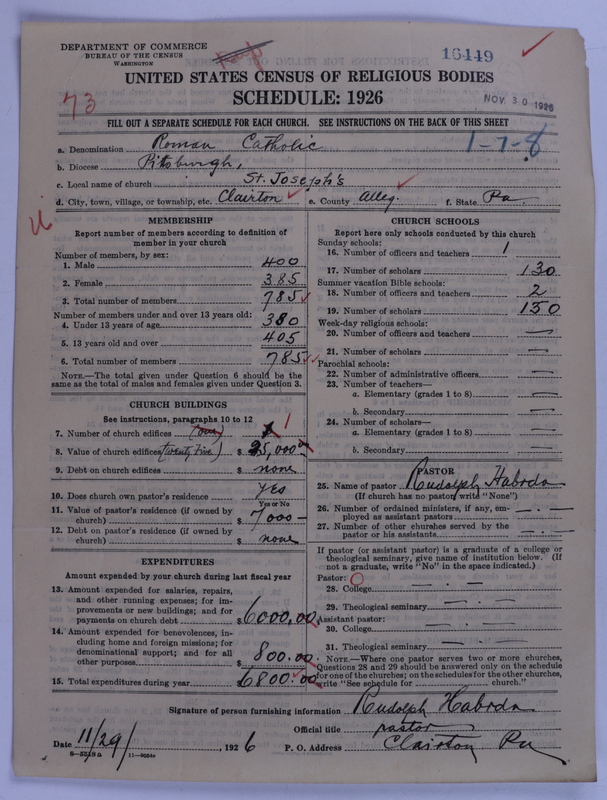 DEPARTMENT OF COMMERCE
BUREAU OF THE CENSUS
WASHINGTON
16449
UNITED STATES CENSUS OF RELIGIOUS BODIES
SCHEDULE: 1926
NOV 30 1926
73
FILL OUT A SEPARATE SCHEDULE FOR EACH CHURCH. SEE INSTRUCTIONS ON THE BACK OF THIS SHEET
1-7-8
a. Denomination Roman Catholic
b. Diocese Pittsburgh,
c. Local name of church St. Joseph's
d. City, town, village, or township, etc. Clairton e. County Alleg. f. State Pa
MEMBERSHIP
Report number of members according to definition of member in your church
Number of members, by sex:
1. Male 400
2. Female 385
3. Total number of members 785
Number of members under and over 13 years old:
4. Under 13 years of age 380
5. 13 years old and over 405
6. Total number of members 785
NOTE.—The total given under Question 6 should be same as the total of males and females given under Question 3.
CHURCH BUILDINGS
See instructions, paragraphs 10 to 12
7. Number of church edifices (one) 1 1
8. Value of church edifices (twenty five) $ 25,000.00
9. Debt on church edifices $ none
10. Does church own pastor's residence Yes
Yes or No
11. Value of pastor's residence (if owned by church) $ 7000 —
12. Debt on pastor's residence (if owned by church) $ none
EXPENDITURES
Amount expended by your church during last fiscal year
13. Amount expended for salaries, repairs, and other running expenses; for improvements or new buildings; and for payments on church debt $ 6000.00
14. Amount expended for benevolences, including home and foreign missions; for denominational support; and for all other purposes $ 800.00
15. Total expenditures during year $ 6800.00
CHURCH SCHOOLS
Report here only schools conducted by this church
Sunday schools:
16. Number of officers and teachers 1
17. Number of scholars 130
Summer vacation Bible schools:
18. Number of officers and teachers 2
19. Number of scholars 150
Week-day religious schools:
20. Number of officers and teachers —
21. Number of scholars —
Parochial schools:
22. Number of administrative officers —
23. Number of teachers—
a. Elementary (grades 1 to 8) —
b. Secondary —
24. Number of scholars—
a. Elementary (grades 1 to 8) —
b. Secondary —
PASTOR
25. Name of pastor Rudolph Habrda
(If church has no pastor write "None")
26. Number of ordained ministers, if any, employed as assistant pastors — . —
27. Number of other churches served by the pastor or his assistants — . —
If pastor (or assistant pastor) is a graduate of a college or theological seminary, give name of institution below. (If not a graduate, write "No" in the space indicated.)
Pastor:
28. College — . —
29. Theological seminary — . —
Assistant pastor:
30. College — . —
31. Theological seminary — . —
NOTE.—Where one pastor serves two or more churches, Questions 28 and 29 should be answered only on the schedule for one of the churches; on the schedules for the other churches, write "See schedule for church."
Signature of person furnishing information Rudolph Habrda
Official title pastor
Date 11/29/, 1926 P. O. Address Clairton Pa